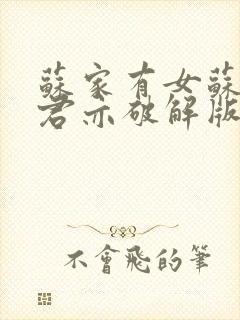 蘇家有女蘇
君亦破解版
不會飛的筆